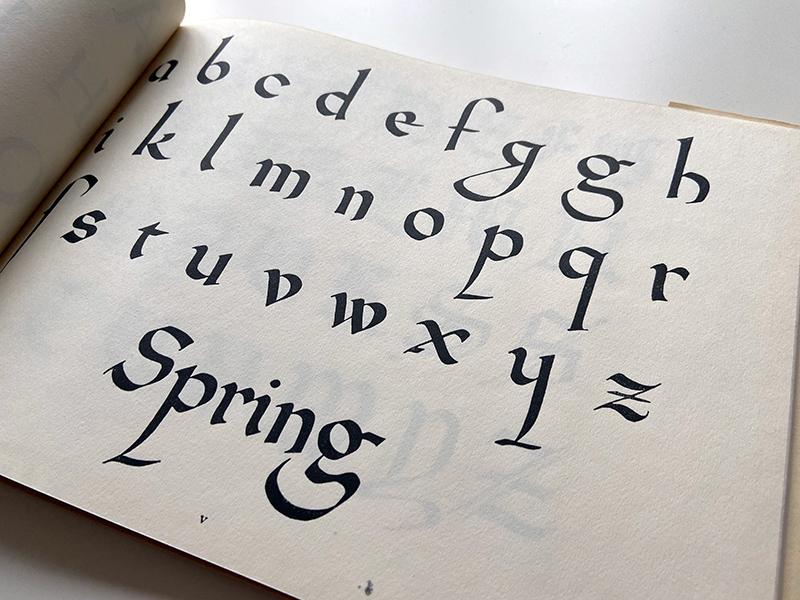 a b c d e f g g h
i k l m n o p q r
ſ s t u v w x y z
Spring
v